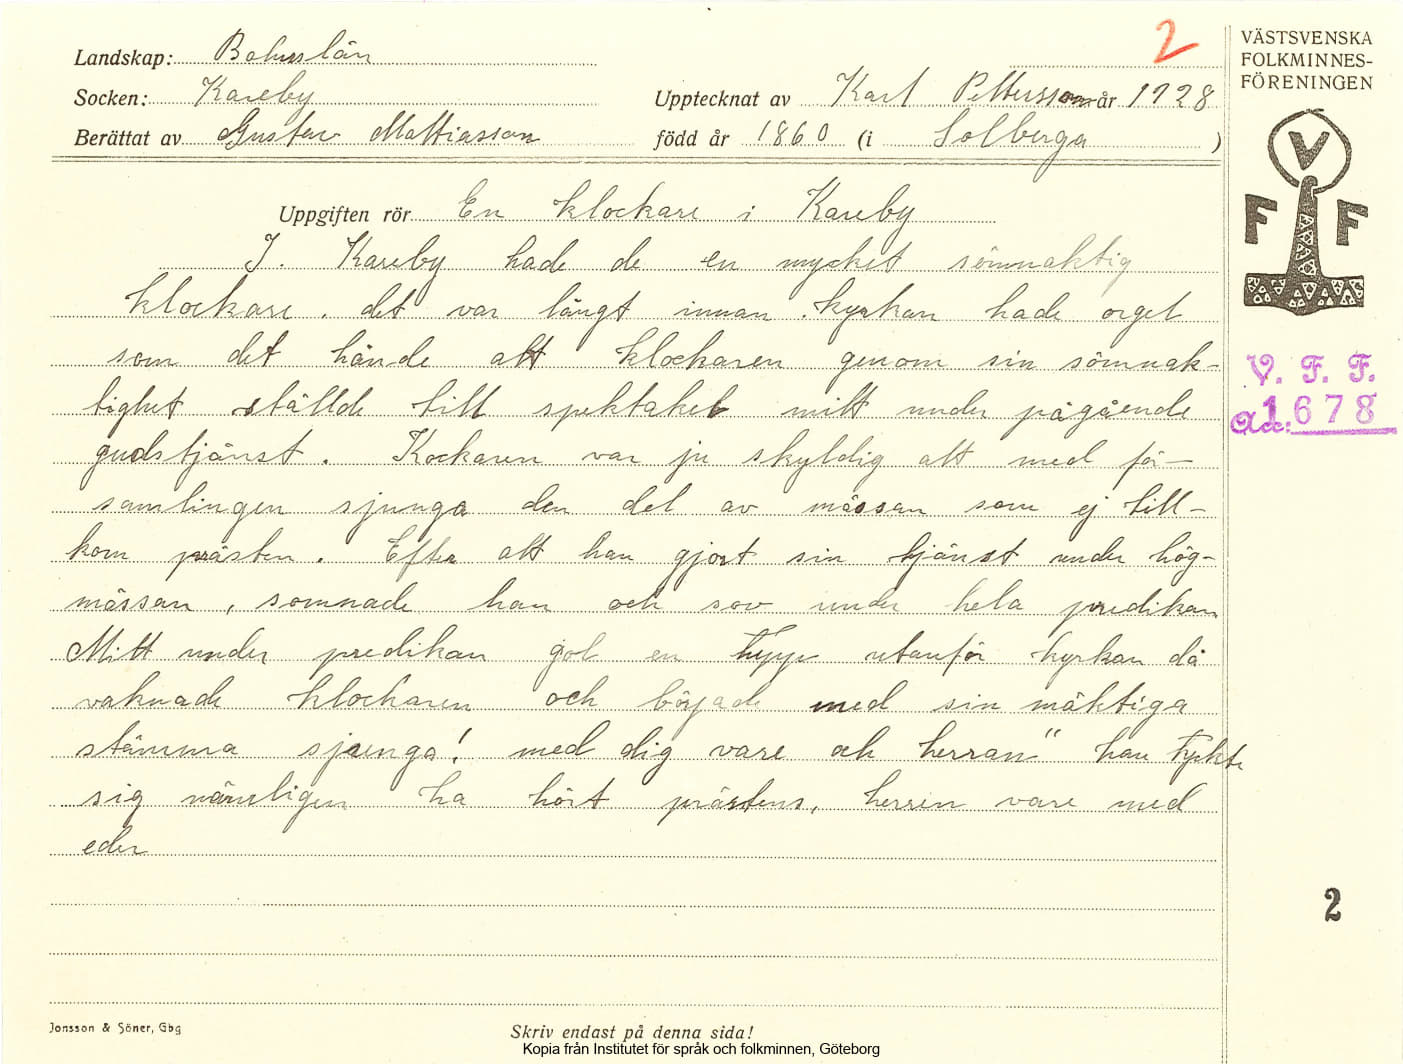 Landskap: Bohuslän
2
Socken: Kareby
Upptecknat av Karl Pettersson år 1928
Berättat av Gustav Mattiasson
född år 1860 (i Solberga )
Uppgiften rör En klockare i Kareby
I. Kareby hade de en mycket sömnaktig
klockare. det var långt innan kyrkan hade orgel
som det hände att klockaren genom sin sömnak-
tighet ställde till spektakel mitt under pågående
gudstjänst. Kockaren var ju skyldig att med för-
samlingen sjunga den del av mässan som ej till-
kom prästen. Efter att han gjort sin tjänst under hög-
mässan, somnade han och sov under hela predikan
Mitt under predikan gol en tupp utanför kyrkan då
vaknade klockaren och började med sin mäktiga
stämma sjunga! med dig vare ock herran" han tyckte
sig nämligen ha hört prästens, herren vare med
eder
Jonsson & Söner, Gbg
Skriv endast på denna sida!
Kopia från Institutet för språk och folkminnen, Göteborg
VÄSTSVENSKA
FOLKMINNES-
FÖRENINGEN
V
F F
V. F. F.
Acc: 1678
2